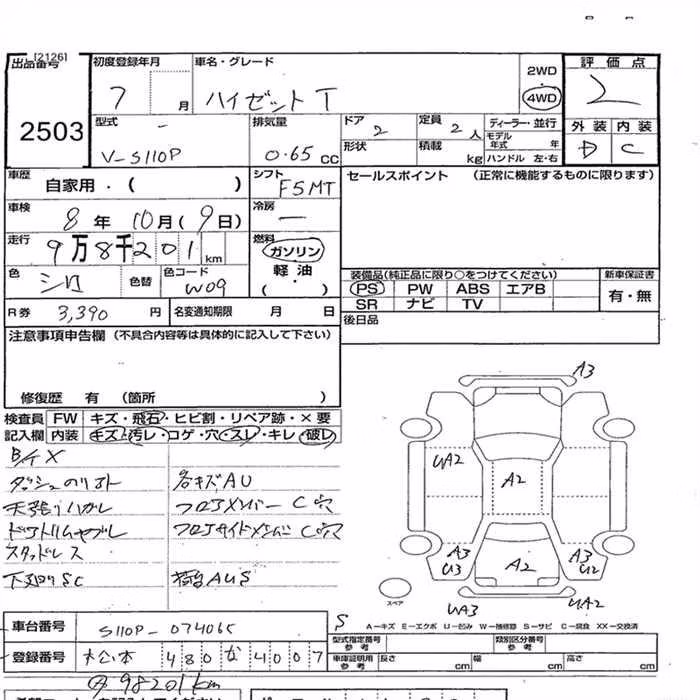 [2126]
出品番号 2503
初度登録年月 7 月
車名・グレード ハイゼットT
2WD 4WD
評価点 2
外装 D 内装 C
型式 V-S110P
排気量 0.65 CC
ドア 2
定員 2 人
ディーラー・並行
形状
積載 kg
モデル年式 年
ハンドル 左・右
車歴 自家用・( )
シフト F5MT
セールスポイント (正常に機能するものに限ります)
車検 8年 10月(9日)
冷房 —
走行 9万8千201 km
燃料 ガソリン 軽油 ( ・ )
色 シロ 色替 色コード W09
装備品(純正品に限り○をつけてください)
PS PW ABS エアB
SR ナビ TV
新車保証書 有・無
R券 3,390 円 名変通知期限 月 日
後日品
注意事項申告欄 (不具合内容等は具体的に記入して下さい)
修復歴 有 (箇所 )
検査員 FW キズ・飛石・ヒビ割・リペア跡・×要
記入欄 内装 キズ・汚レ・コゲ・穴・スレ・キレ・破レ
ダッシュのリオト 各キズAU
天張りハガレ フロアメンバーC穴
ドアトリムヤブレ フロアサイドメンバーC穴
スタッドレス
下廻りSC 荷台AUS
A3
UA2
A2
A3 U3
A2
A3 U2
UA3
UA2
スペア
S
A－キズ E－エクボ U－凹み W－補修跡 S－サビ C－腐食 XX－交換済
車台番号 S110P-074065
型式指定番号 参考
類別区分番号 参考
登録番号 松本 480 な 4007
車庫証明用 参考 長さ cm 幅 cm 高さ cm
98201km